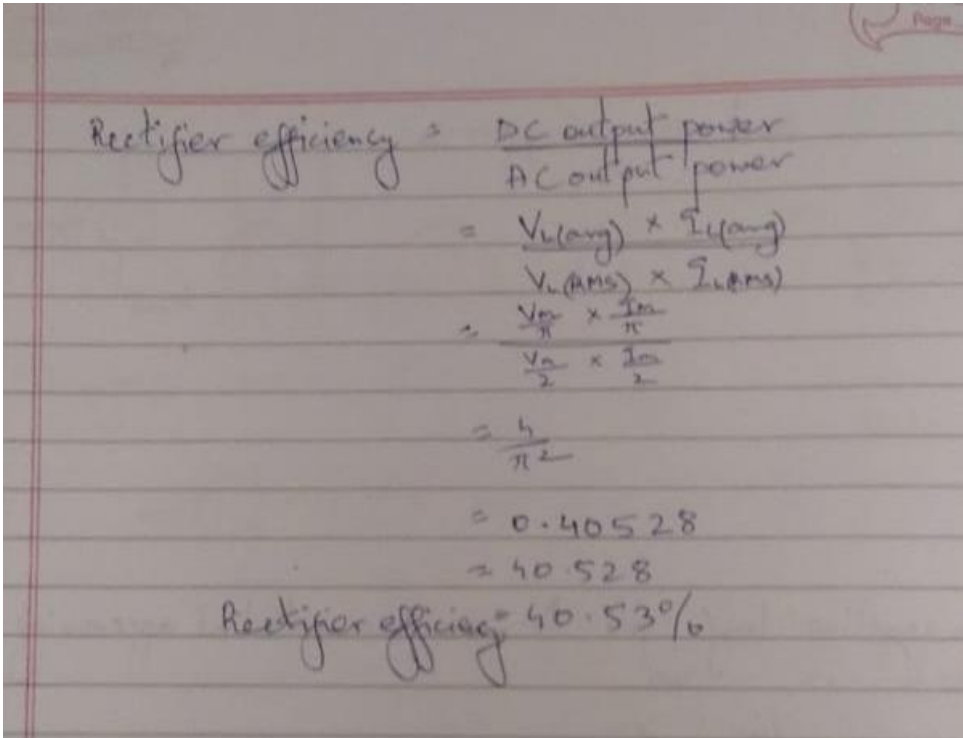 Page
Rectifier efficiency = DC output power
AC output power
= VL(avg) × IL(avg)
VL(RMS) × IL(RMS)
= Vm/π × Im/π
Vm/2 × Im/2
= 4/π2
= 0.40528
= 40.528
Rectifier efficiency = 40.53%